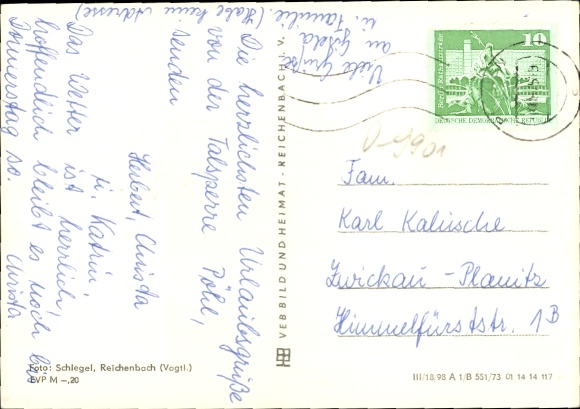 Die herzlichsten Urlaubsgrüße
von der Talsperre Pöhl,
senden
Herbert, Christa
u. Katrin
Das Wetter ist herrlich,
hoffendlich bleibt es noch bis
Donnerstag so.
Christa
Viele Grüße
an Gisela
u. Familie. (Habe keine Adresse)
VEB BILD UND HEIMAT · REICHENBACH i. V.
10
DEUTSCHE DEMOKRATISCHE REPUBLIK
Fam.
Karl Kalische
Zwickau - Planitz
Himmelfürststr. 1B
Foto: Schlegel, Reichenbach (Vogtl.)
EVP M –,20
III/18/98 A 1/B 551/73 01 14 14 117